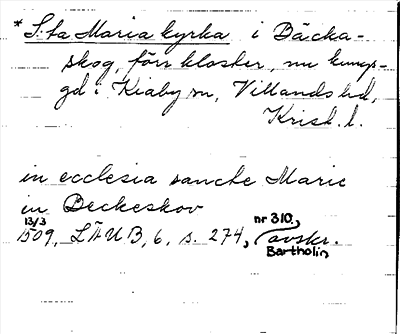 * S:ta Maria kyrka i Bäcka-
skog, förr kloster, nu kungs-
gd i Kiaby sn, Villands hd,
Krist. l.
in ecclesia sancte Marie
in Beckeskov
13/3 nr 310,
1509, LÄUB, 6, s. 274, avskr.
Bartholin